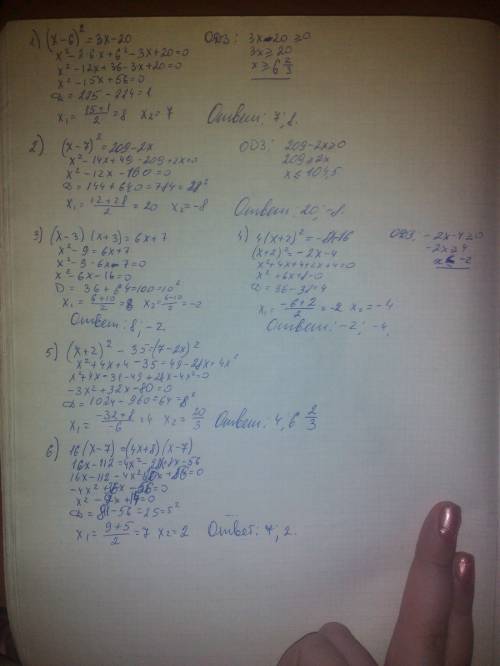 1) (x-6)² = 3x-20
ОДЗ: 3x-20 ≥0
x²-2·6x+6²-3x+20=0
3x≥20
x²-12x+36-3x+20=0
x≥6 2/3
x²-15x+56=0
D=225-224=1
x₁= (15+1)/2 =8 x₂=7
Ответ: 7; 8.
2) (x-7)²=209-2x
ОДЗ: 209-2x≥0
x²-14x+49-209+2x=0
209≥2x
x²-12x-160=0
x≤104,5
D=144+640=784=28²
x₁= (12+28)/2 =20 x₂=-8
Ответ: 20; -8.
3) (x-3)(x+3)=6x+7
x²-9=6x+7
x²-9-6x-7=0
x²-6x-16=0
D=36+64=100=10²
x₁= (6+10)/2 =8 x₂= (6-10)/2 =-2
Ответ: 8; -2.
4) 4(x+2)²=-8x-16
ОДЗ: -2x-4≥0
(x+2)²=-2x-4
-2x≥4
x²+4x+4+2x+4=0
x≤-2
x²+6x+8=0
x₁= (-6+2)/2 =-2 x₂=-4
Ответ: -2; -4.
5) (x+2)²-35=(7-2x)²
x²+4x+4-35=49-28x+4x²
x²+4x-31-49+28x-4x²=0
-3x²+32x-80=0
D=1024-960=64=8²
x₁= (-32+8)/-6 =4 x₂= 20/3
Ответ: 4; 6 2/3
6) 16(x-7)=(4x+8)(x-7)
16x-112=4x²-28x+8x-56
-56=0
D=81-56=25=5²
x₁= (9+5)/2 =7 x₂=2
Ответ: 7; 2.